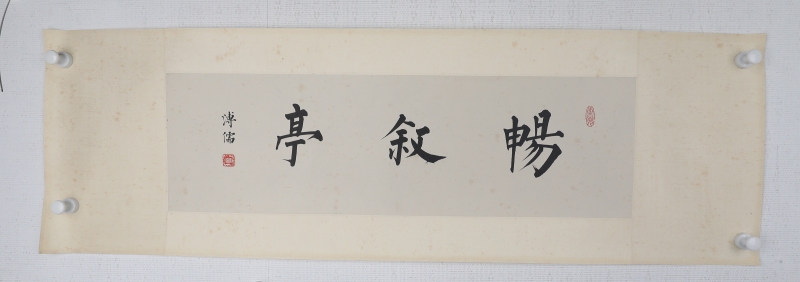 暢敘亭
溥儒